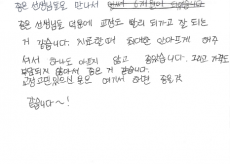 좋은 선생님들을 만나서
좋은 선생님들 덕분에 교정도 빨리 되가고 잘 되는
거 같습니다. 치료할때 최대한 안아프게 해주
셔서 하나도 아프지 않고 좋았습니다. 그리고 가격도
부담되지 않아서 좋은 거 같습니다.
교정고민있으신 분은 여기서 하면 좋을거
같습니다~!